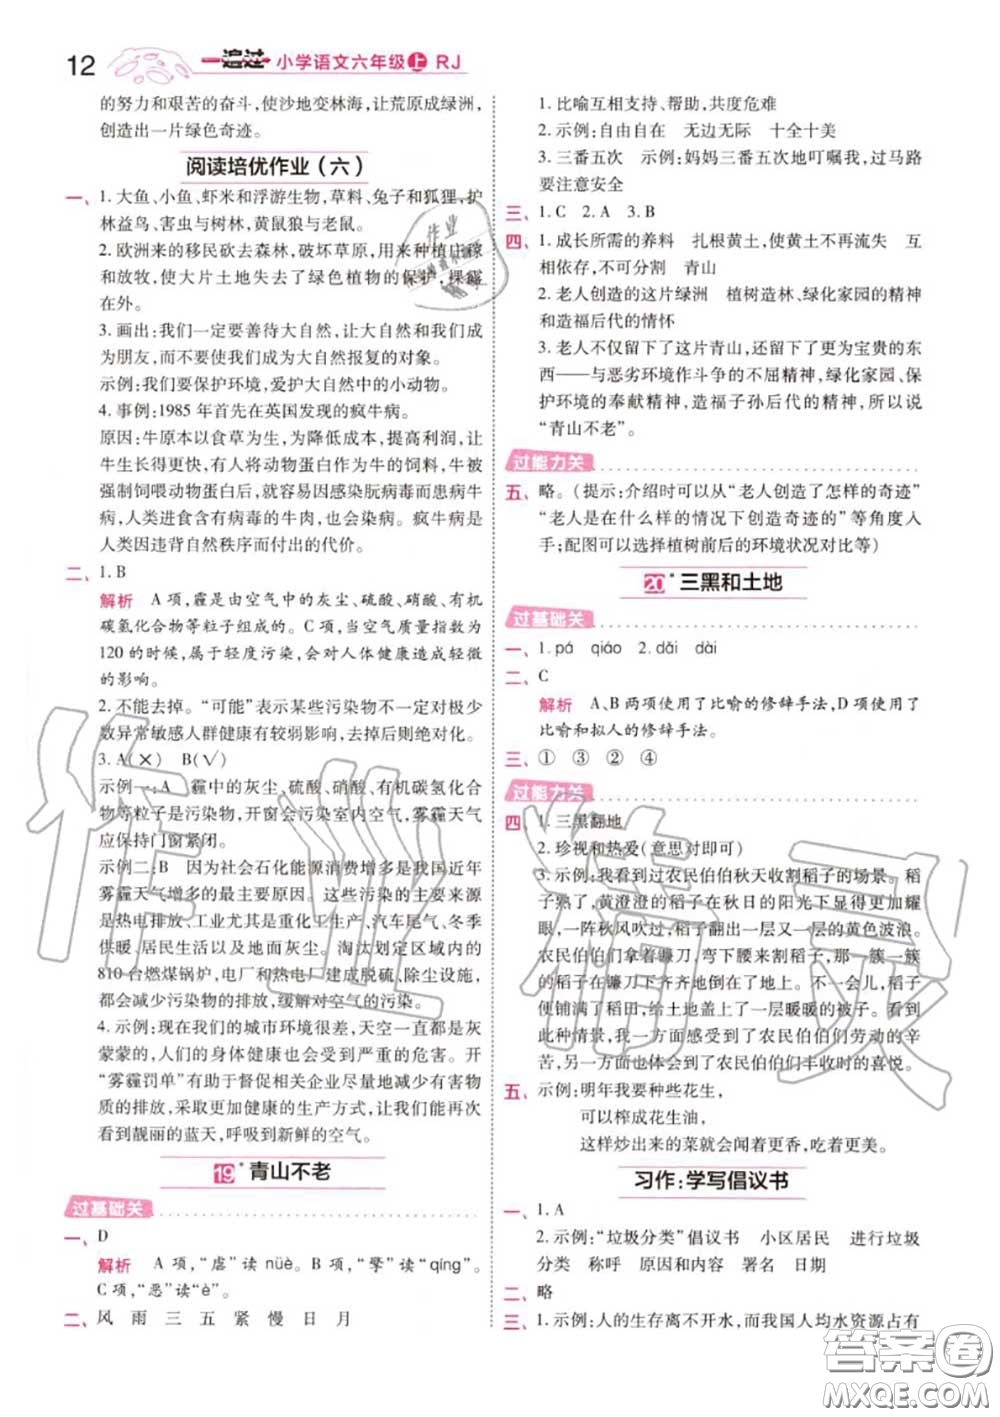 12
一遍过 小学语文六年级上 RJ
的努力和艰苦的奋斗,使沙地变林海,让荒原成绿洲,
创造出一片绿色奇迹。
阅读培优作业(六)
一、1. 大鱼、小鱼、虾米和浮游生物,草料、兔子和狐狸,护
林益鸟、害虫与树林,黄鼠狼与老鼠。
2. 欧洲来的移民砍去森林,破坏草原,用来种植庄稼
和放牧,使大片土地失去了绿色植物的保护,裸露
在外。
3. 画出:我们一定要善待大自然,让大自然和我们成
为朋友,而不要使我们成为大自然报复的对象。
示例:我们要保护环境,爱护大自然中的小动物。
4. 事例:1985 年首先在英国发现的疯牛病。
原因:牛原本以食草为生,为降低成本,提高利润,让
牛生长得更快,有人将动物蛋白作为牛的饲料,牛被
强制饲喂动物蛋白后,就容易因感染朊病毒而患疯牛
病,人类进食含有病毒的牛肉,也会染病。疯牛病是
人类因违背自然秩序而付出的代价。
二、1. B
解析 A 项,霾是由空气中的灰尘、硫酸、硝酸、有机
碳氢化合物等粒子组成的。C 项,当空气质量指数为
120 的时候,属于轻度污染,会对人体健康造成轻微
的影响。
2. 不能去掉。“可能”表示某些污染物不一定对极少
数异常敏感人群健康有较弱影响,去掉后则绝对化。
3. A(✕) B(√)
示例一:A 雾霾中的灰尘、硫酸、硝酸、有机碳氢化合
物等粒子是污染物,开窗会污染室内空气,雾霾天气
应保持门窗紧闭。
示例二:B 因为社会石化能源消费增多是我国近年
雾霾天气增多的最主要原因。这些污染的主要来源
是热电排放、工业尤其是重化工生产、汽车尾气、冬季
供暖、居民生活以及地面灰尘。淘汰划定区域内的
810 台燃煤锅炉,电厂和热电厂建成脱硫、除尘设施,
都会减少污染物的排放,缓解对空气的污染。
4. 示例:现在我们的城市环境很差,天空一直都是灰
蒙蒙的,人们的身体健康也会受到严重的危害。开
“雾霾罚单”有助于督促相关企业尽量地减少有害物
质的排放,采取更加健康的生产方式,让我们能再次
看到靓丽的蓝天,呼吸到新鲜的空气。
19* 青山不老
过基础关
一、D
解析 A 项,“虐”读 nüè。B 项,“擎”读“qíng”。
C 项,“恶”读“è”。
二、风 雨 三 五 紧 慢 日 月
1. 比喻互相支持、帮助,共度危难
2. 示例:自由自在 无边无际 十全十美
3. 三番五次 示例:妈妈三番五次地叮嘱我,过马路
要注意安全
三、1. C 2. A 3. B
四、1. 成长所需的养料 扎根黄土,使黄土不再流失 互
相依存,不可分割 青山
2. 老人创造的这片绿洲 植树造林、绿化家园的精神
和造福后代的情怀
3. 老人不仅留下了这片青山,还留下了更为宝贵的东
西——与恶劣环境作斗争的不屈精神,绿化家园、保
护环境的奉献精神,造福子孙后代的精神,所以说
“青山不老”。
过能力关
五、略。(提示:介绍时可以从“老人创造了怎样的奇迹”
“老人是在什么样的情况下创造奇迹的”等角度入
手;配图可以选择植树前后的环境状况对比等)
20* 三黑和土地
过基础关
一、1. pá qiáo 2. dǎi dài
二、C
解析 A、B 两项使用了比喻的修辞手法,D 项使用了
比喻和拟人的修辞手法。
三、① ③ ② ④
过能力关
四、1. 三黑翻地
2. 珍视和热爱(意思对即可)
3. 示例:我看到过农民伯伯秋天收割稻子的场景。稻
子熟了,黄澄澄的稻子在秋日的阳光下显得更加耀
眼,一阵秋风吹过,稻子翻出一层又一层的黄色波浪。
农民伯伯们拿着镰刀,弯下腰来割稻子,那一簇一簇
的稻子在镰刀下齐齐地倒在了地上。不一会儿,稻子
便铺满了稻田,给土地盖上了一层暖暖的被子。看到
此种情景,我一方面感受到了农民伯伯们劳动的辛
苦,另一方面也体会到了农民伯伯们丰收时的喜悦。
五、示例:明年我要种些花生,
可以榨成花生油,
这样炒出来的菜就会闻着更香,吃着更美。
习作:学写倡议书
一、1. A
2. 示例:“垃圾分类”倡议书 小区居民 进行垃圾
分类 称呼 原因和内容 署名 日期
二、略
三、1. 示例:人的生存离不开水,而我国人均水资源占有
作业精灵
答案圈
MXQE.COM